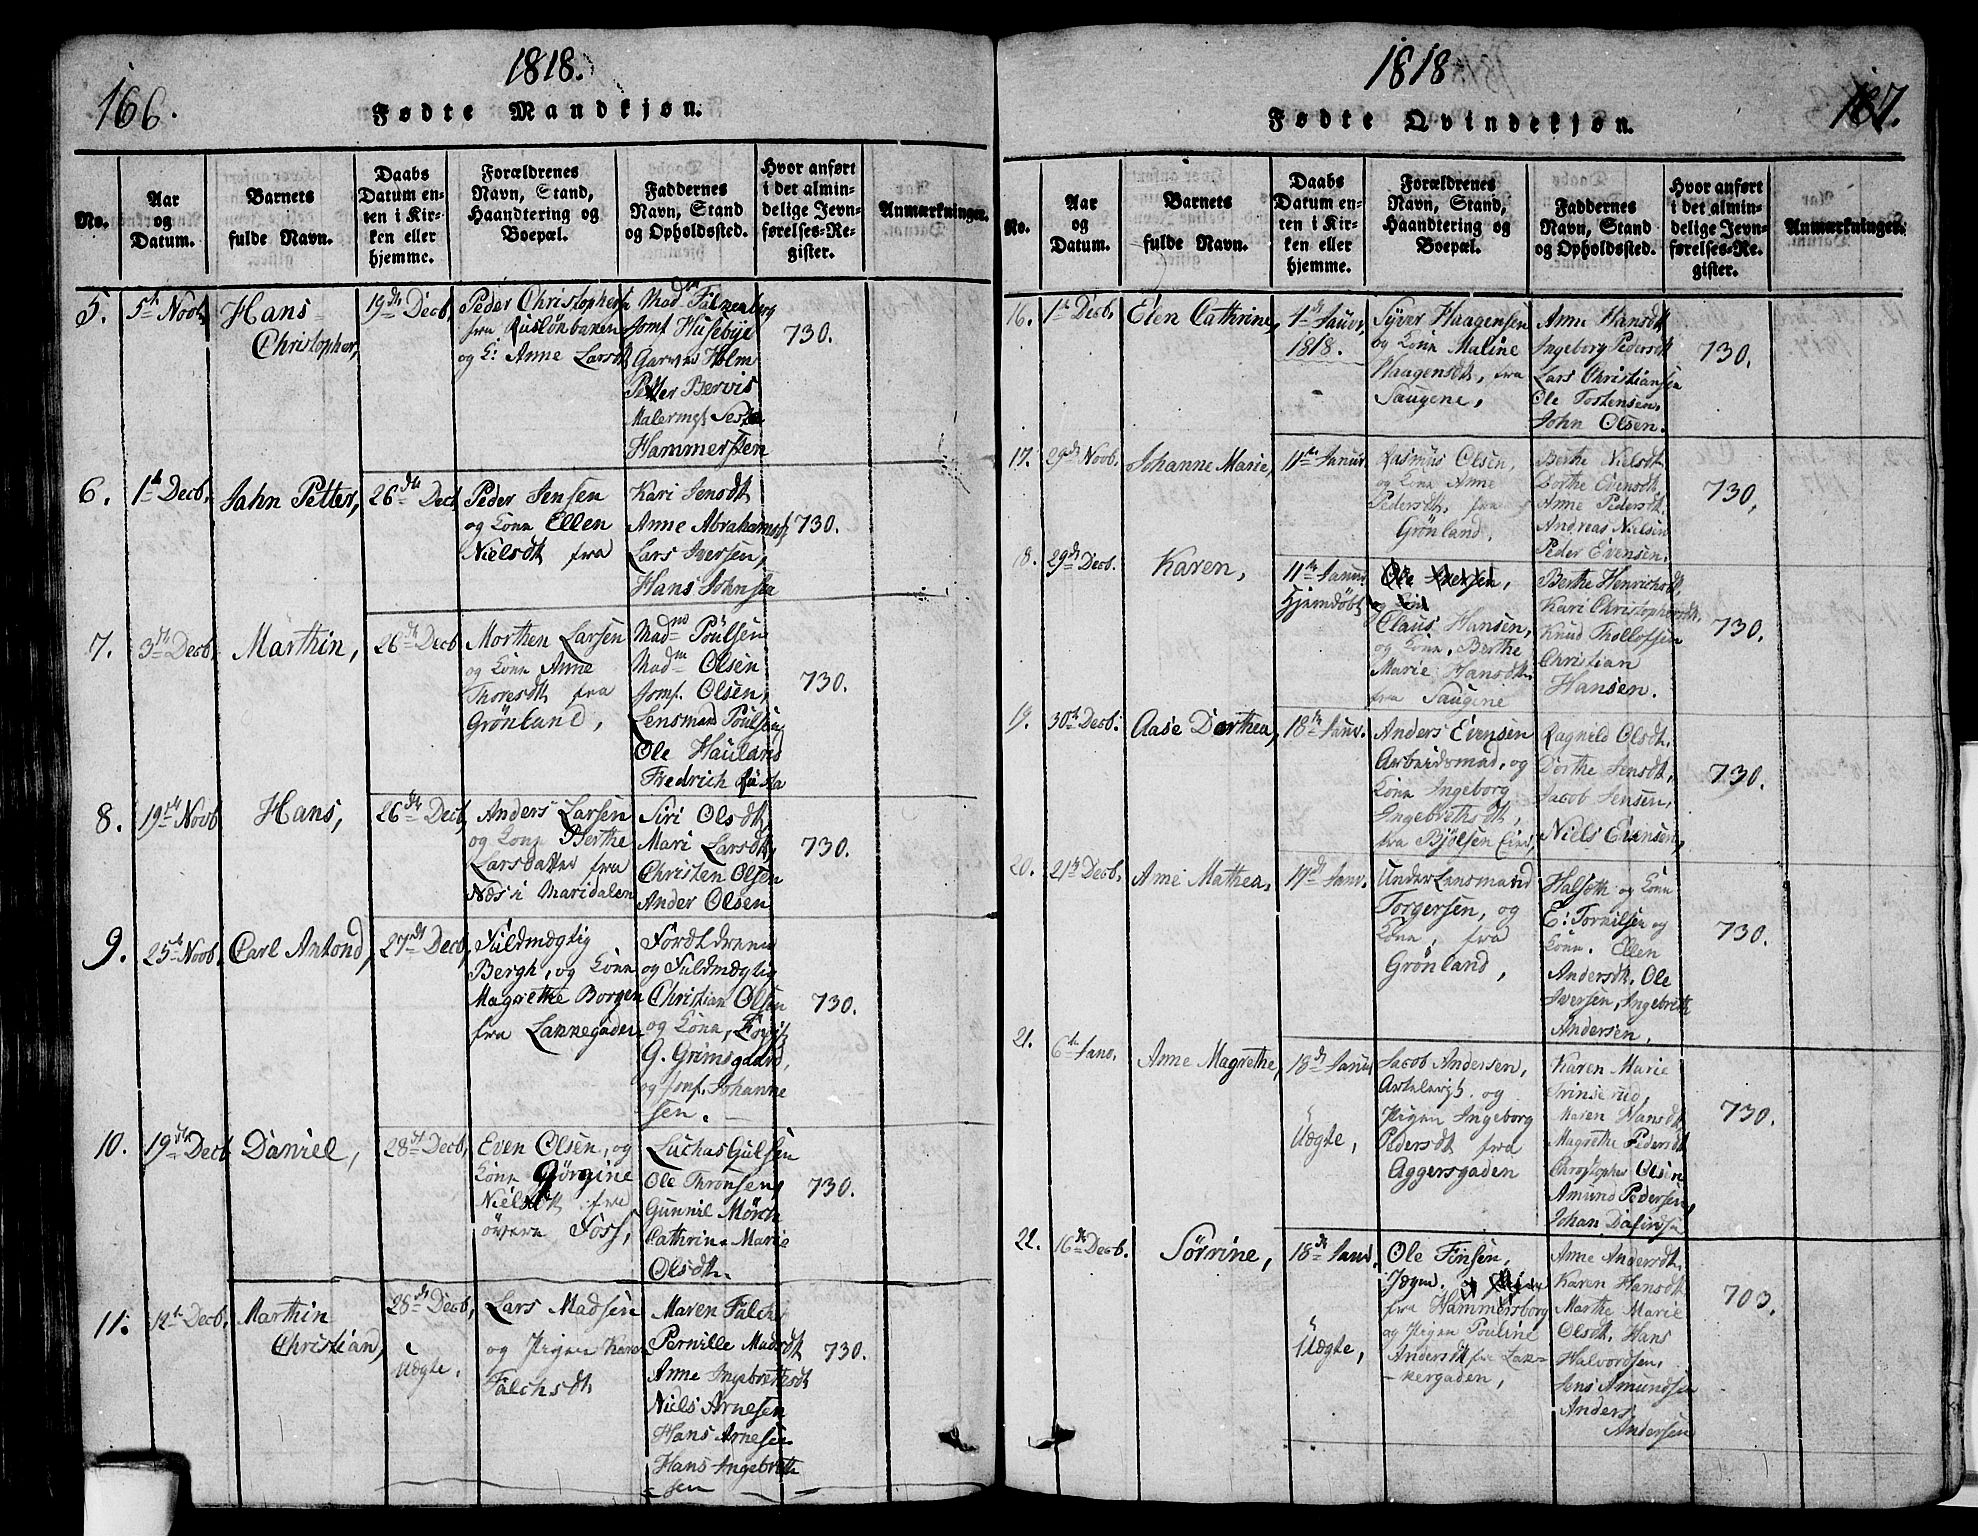 166.
1818.
Fødte Mandkjøn.
No.
Aar og Datum.
Barnets fulde Navn.
Daabs Datum enten i Kirken eller hjemme.
Forældrenes Navn, Stand, Haandtering og Boepæl.
Faddernes Navn, Stand og Opholdssted.
Hvor anført i det almindelige Jevnførelses-Register.
Anmærkninger.
5.
5t Novb.
Hans
Christopher,
19de Decb.
Peder Christophers
fra
og K: Anne Larsdt
Mad Falzenberg
Jomf Husebye
Holm
Petter Bervis
Malermest
Hammersten
730.
6.
1t Decb.
Jahn Petter,
26de Decb
Peder Jensen
og Kona Ellen
Nielsdt fra
Kari Jensdt
Anne Abrahamsdt
Lars Iversen,
Hans Johnsen
730.
7.
3de Decb.
Marthin,
26de Decb
Morthen Larsen
og Kona Anne
Thoresdt fra
Grönland,
Mad Poulsen
Mad Olsen
Jomf. Olsen,
Lensmand Poulsen
Ole Hauland
Fredrich
730.
8.
19de Novb
Hans,
26de Decb,
Anders Larsen
og Kona Berthe
Larsdatter fra
Næs i Maridalen
Siri Olsdt
Mari Larsdt,
Christen Olsen
Ander Olsen
730.
9.
25t Novb.
Carl Antond,
27de Decb,
Fuldmægtig
Bergh, og Kona
Magrethe Borgen
fra Lakkegaden
og Fuldmægtig
Christian Olsen
og Kona,
G. Grimsgaard,
og Jomf. Johanne
sen.
730.
10.
19de Decb
Daniel,
28de Decb,
Even Olsen, og
Kona Görgine
Nielsdt fra
övera Foss,
Luchas Gulsen
Ole Thronsen,
Gunnil Mörch
Cathrina Marie
Olsdt.
730.
11.
12t Decb.
Marthin
Christian,
28de Decb,
Uægte.
Lars Madsen
og Pigen Kare
Falchsdt
Maren Falch
Pernille Madsdt
Anne Ingebrethsdt
Niels Arnesen
Hans Arnesen
Hans Ingebreth
sen
730.
1818
167.
Fødte Qvindekjøn.
No.
Aar og Datum.
Barnets fulde Navn.
Daabs Datum enten i Kirken eller hjemme.
Forældrenes Navn, Stand, Haandtering og Boepæl.
Faddernes Navn, Stand og Opholdssted.
Hvor anført i det almindelige Jevnførelses-Register.
Anmærkninger.
16.
1t Decb.
Elen Cathrine,
1de Janur.
1818.
Syver Haagensen
og Kona Maline
Haagensdt, fra
Saugene,
Anne Hansdt
Ingeborg Pedersdt
Lars Christiansen
Ole Tostensen,
John Olsen.
730.
17.
29de Novb.
Johanne Marie,
11te Janur.
Rasmus Olsen,
og Kona Anne
Pedersdt, fra
Grönland.
Berthe Nielsdt.
Dorthe Evensdt.
Anne Pedersdt.
Andreas Nielsen
Peder Evensen.
730,
18.
29de Decb.
Karen,
11te Janur.
Hjemdöbt
Ole Iversen,
og Kona
Claus Hansen,
og Kona, Berthe
Marie Hansdt.
fra Saugene
Berthe Henrichsdt,
Kari Christophersdt,
Knud Thollofsen
Christian
Hansen.
730.
19.
30te Decb.
Aase Dorthea,
18de Janr.
Anders Evensen
Arbeidsmad, og
Kona Ingeborg
Ingebrethsdt,
fra Bjölsen
Ragnild Olsdt.
Dorthe Jensdt,
Jacob Jensen,
Niels Evensen,
730.
20.
21t Decb.
Ane Mathea,
17de Janr.
Under Lensmand
Torgersen, og
Kona, fra
Grönland,
og Kona
E: Torkilsen og
Kona. Ellen
Andersdt. Ole
Iversen, Ingebreth
Andersen.
730.
21.
6te Janr.
Anne Magrethe,
18de Janur
Uægte,
Jacob Andersen,
og
Pigen Ingeborg
Pedersdt fra
Aggersgaden
Karen Marie
Maren Hansdt.
Magrethe Pedersdt
Christopher Olsen
Amund Pedersen,
Johan
730.
22.
16de Decb.
Sörrine,
18de Janr.
Uægte,
Ole Finsen,
fra Hammersborg
og Pigen Pouline
Andersdt fra Lak-
-kergaden,
Anne Andersdt.
Karen Hansdt
Marthe Marie
Olsdt. Hans
Halvordsen.
Jens Amundsen
Anders
Andersen
703.